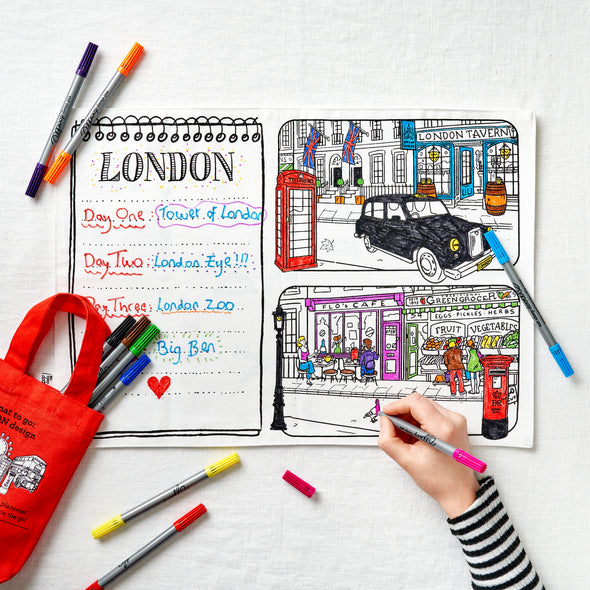 LONDON
Day One: Tower of London
Day Two: London Eye!!!
Day Three: London Zoo
Big Ben
LONDON TAVERN
FLO'S CAFE
GREENGROCER
EGGS PICKLES HERBS
FRUIT
VEGETABLES
at to go:
N design
placemat